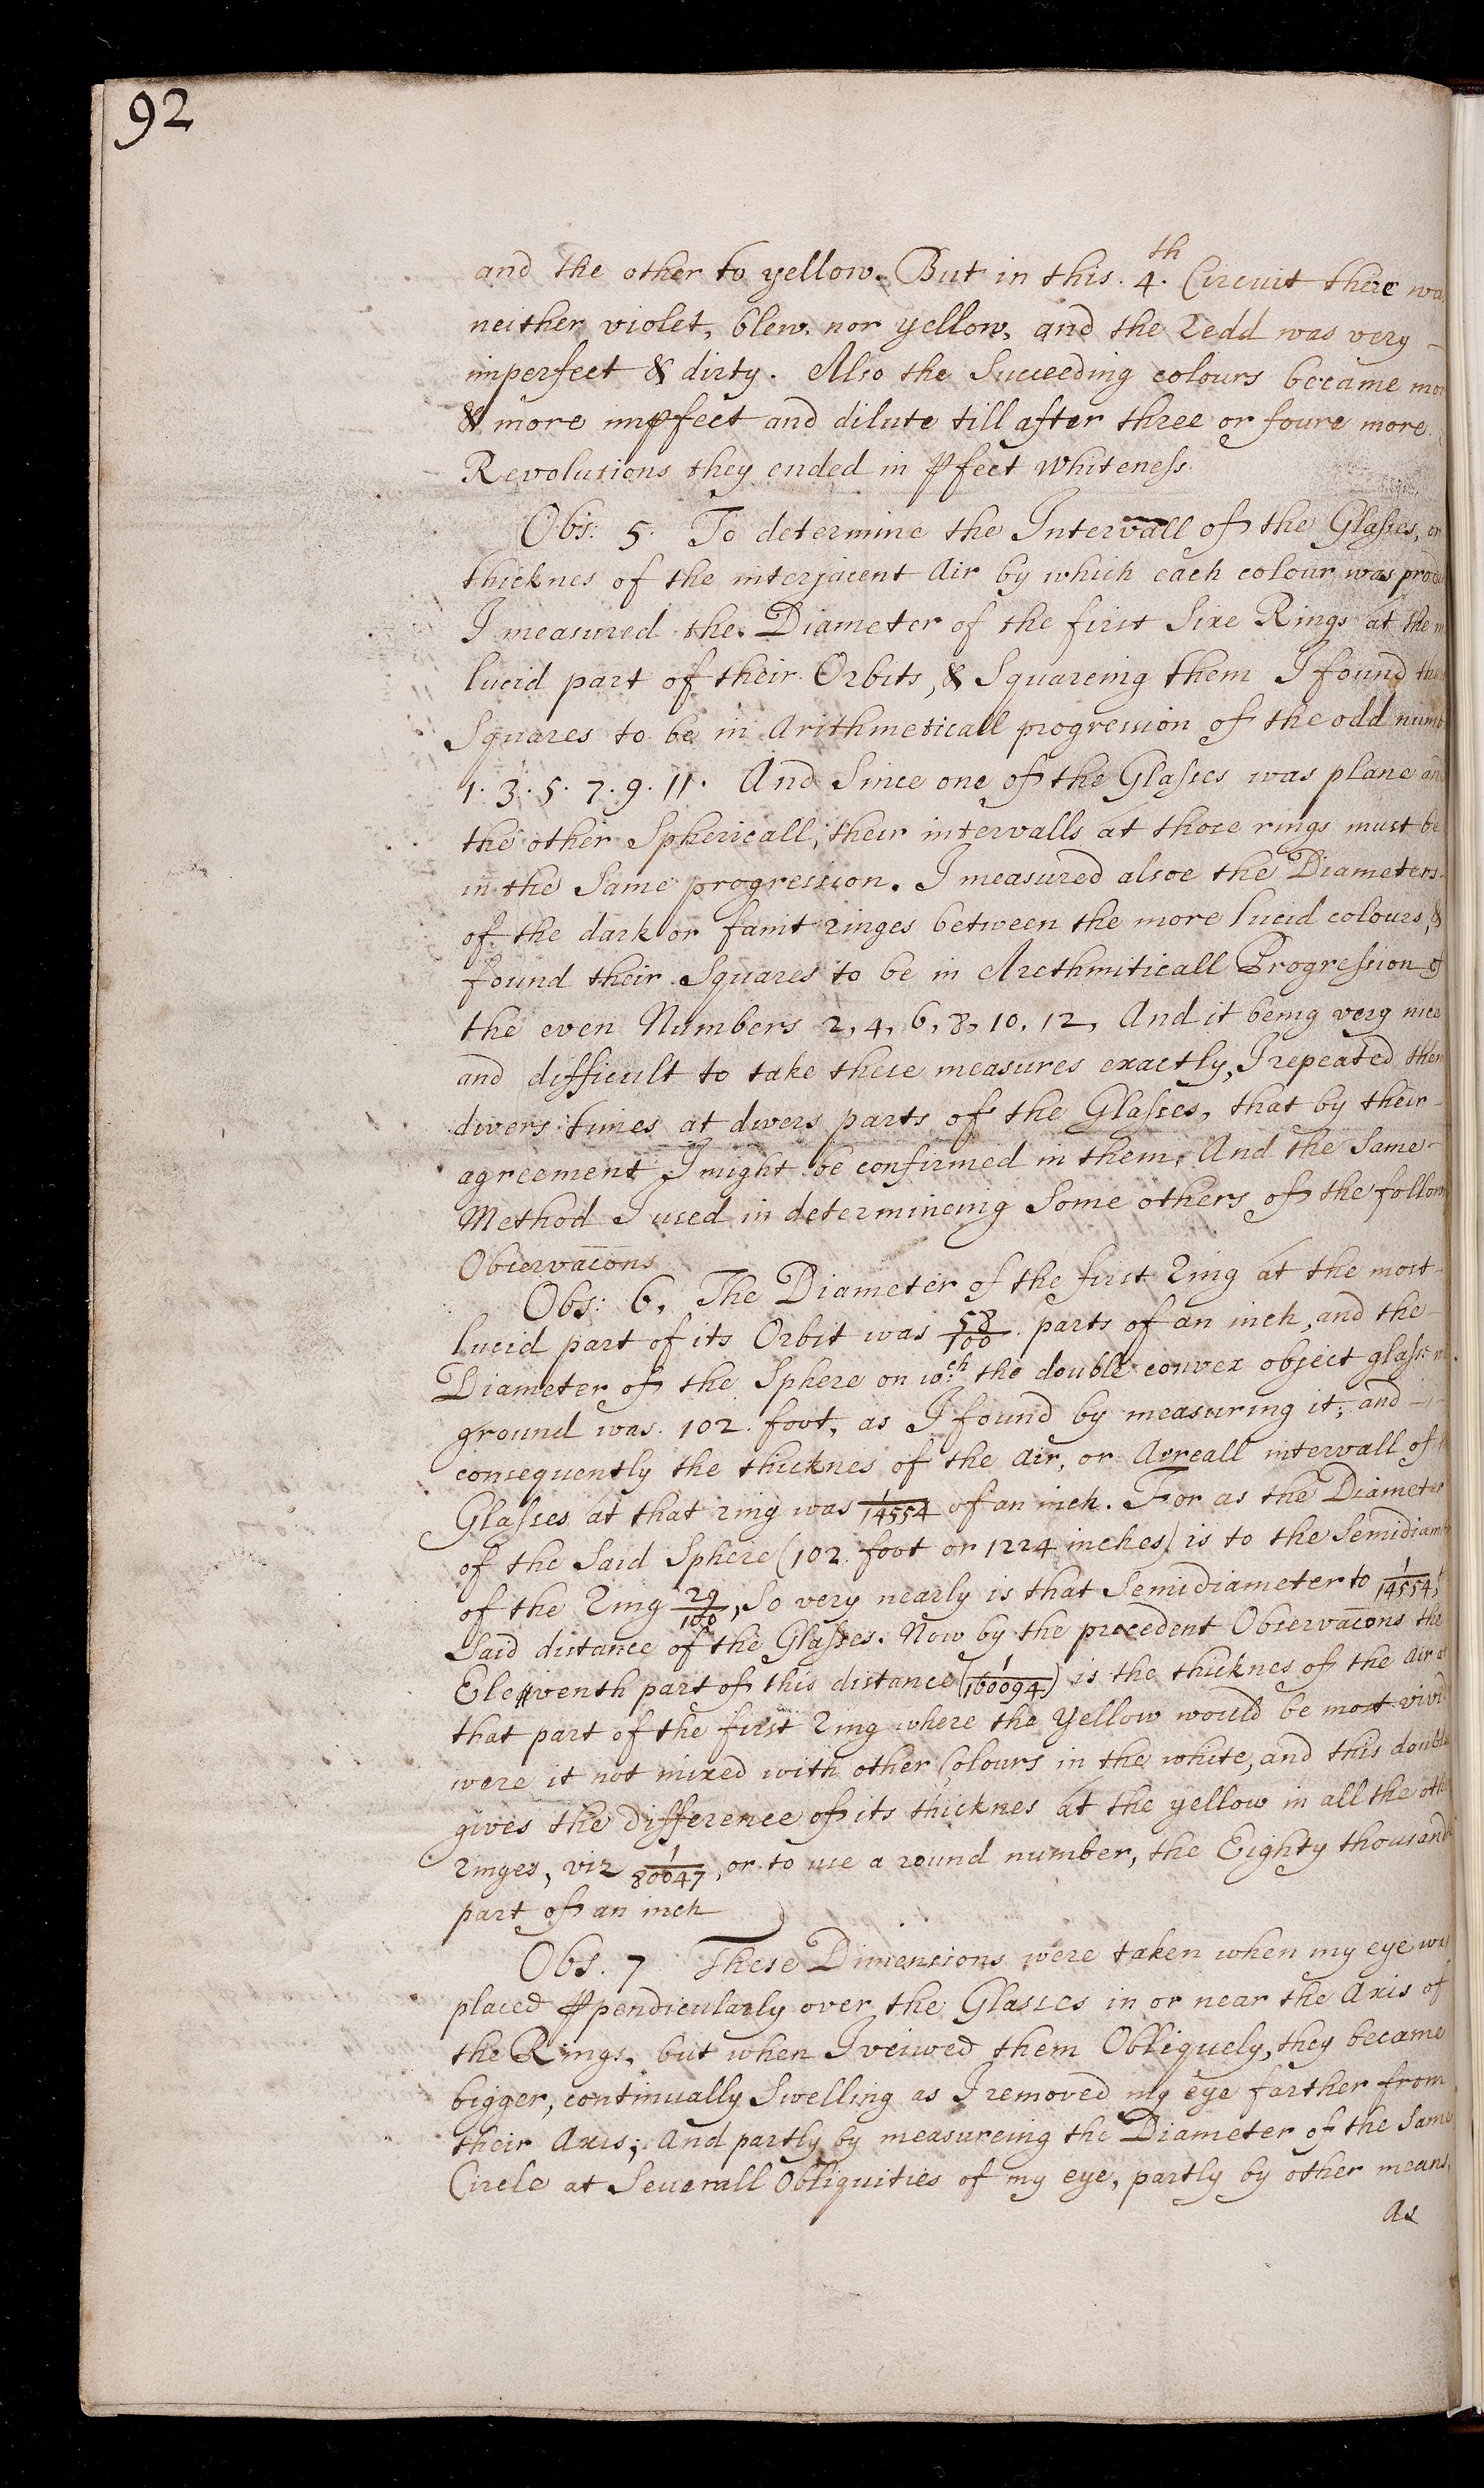 92
and the other to yellow. But in this. 4.th Circuit there wa
neither violet, blew, nor yellow, and the redd was very
imperfect & dirty. Also the Succeeding colours became mor
& more impfect and dilute till after three or foure more
Revolutions they ended in pfect whiteness.
Obs: 5. To determine the Intervall of the Glasses, or
thicknes of the interjacent Air by which each colour was produ
I measured the Diameter of the first Sixe Rings at the m
lucid part of their Orbits, & Squareing them I found the
Squares to be in Arithmeticall progression of the odd numb
1. 3. 5. 7. 9. 11. And Since one of the Glasses was plane and
the other Sphericall, their intervalls at those rings must be
in the Same progression. I measured alsoe the Diameters
of the dark or faint ringes between the more lucid colours, &
found their Squares to be in Arethmiticall Progression of
the even Numbers 2, 4, 6, 8, 10, 12, And it being very nice
and difficult to take these measures exactly, I repeated them
divers times at divers parts of the Glasses, that by their
agreement I might be confirmed in them, And the Same
Method I used in determineing Some others of the follow
Observacons
Obs: 6. The Diameter of the first Ring at the most
lucid part of its Orbit was 58/100 parts of an inch, and the
Diameter of the Sphere on wch the double convex object glass
ground was 102 foot, as I found by measuring it; and
consequently the thicknes of the Air, or Aereall intervall of
Glasses at that ring was 1/14554 of an inch. For as the Diameter
of the Said Sphere (102 foot or 1224 inches) is to the Semidiam
of the Ring 29/100, So very nearly is that Semidiameter to 1/14554, t
Said distance of the Glasses. Now by the precedent Observacons the
Eleventh part of this distance (1/160094) is the thicknes of the Air at
that part of the first Ring where the Yellow would be most vivi
were it not mixed with other Colours in the white, and this double
gives the difference of its thicknes at the yellow in all the oth
ringes, viz 1/80047, or to use a round number, the Eighty thousand
part of an inch
Obs. 7 These Dimensions were taken when my eye wa
placed ppendicularly over the Glasses in or near the Axis of
the Rings, but when I veiwed them Obliquely, they became
bigger, continually Swelling as I removed my eye farther from
their Axis; And partly by measureing the Diameter of the Same
Circle at Seuerall Obliquities of my eye, partly by other means,
As